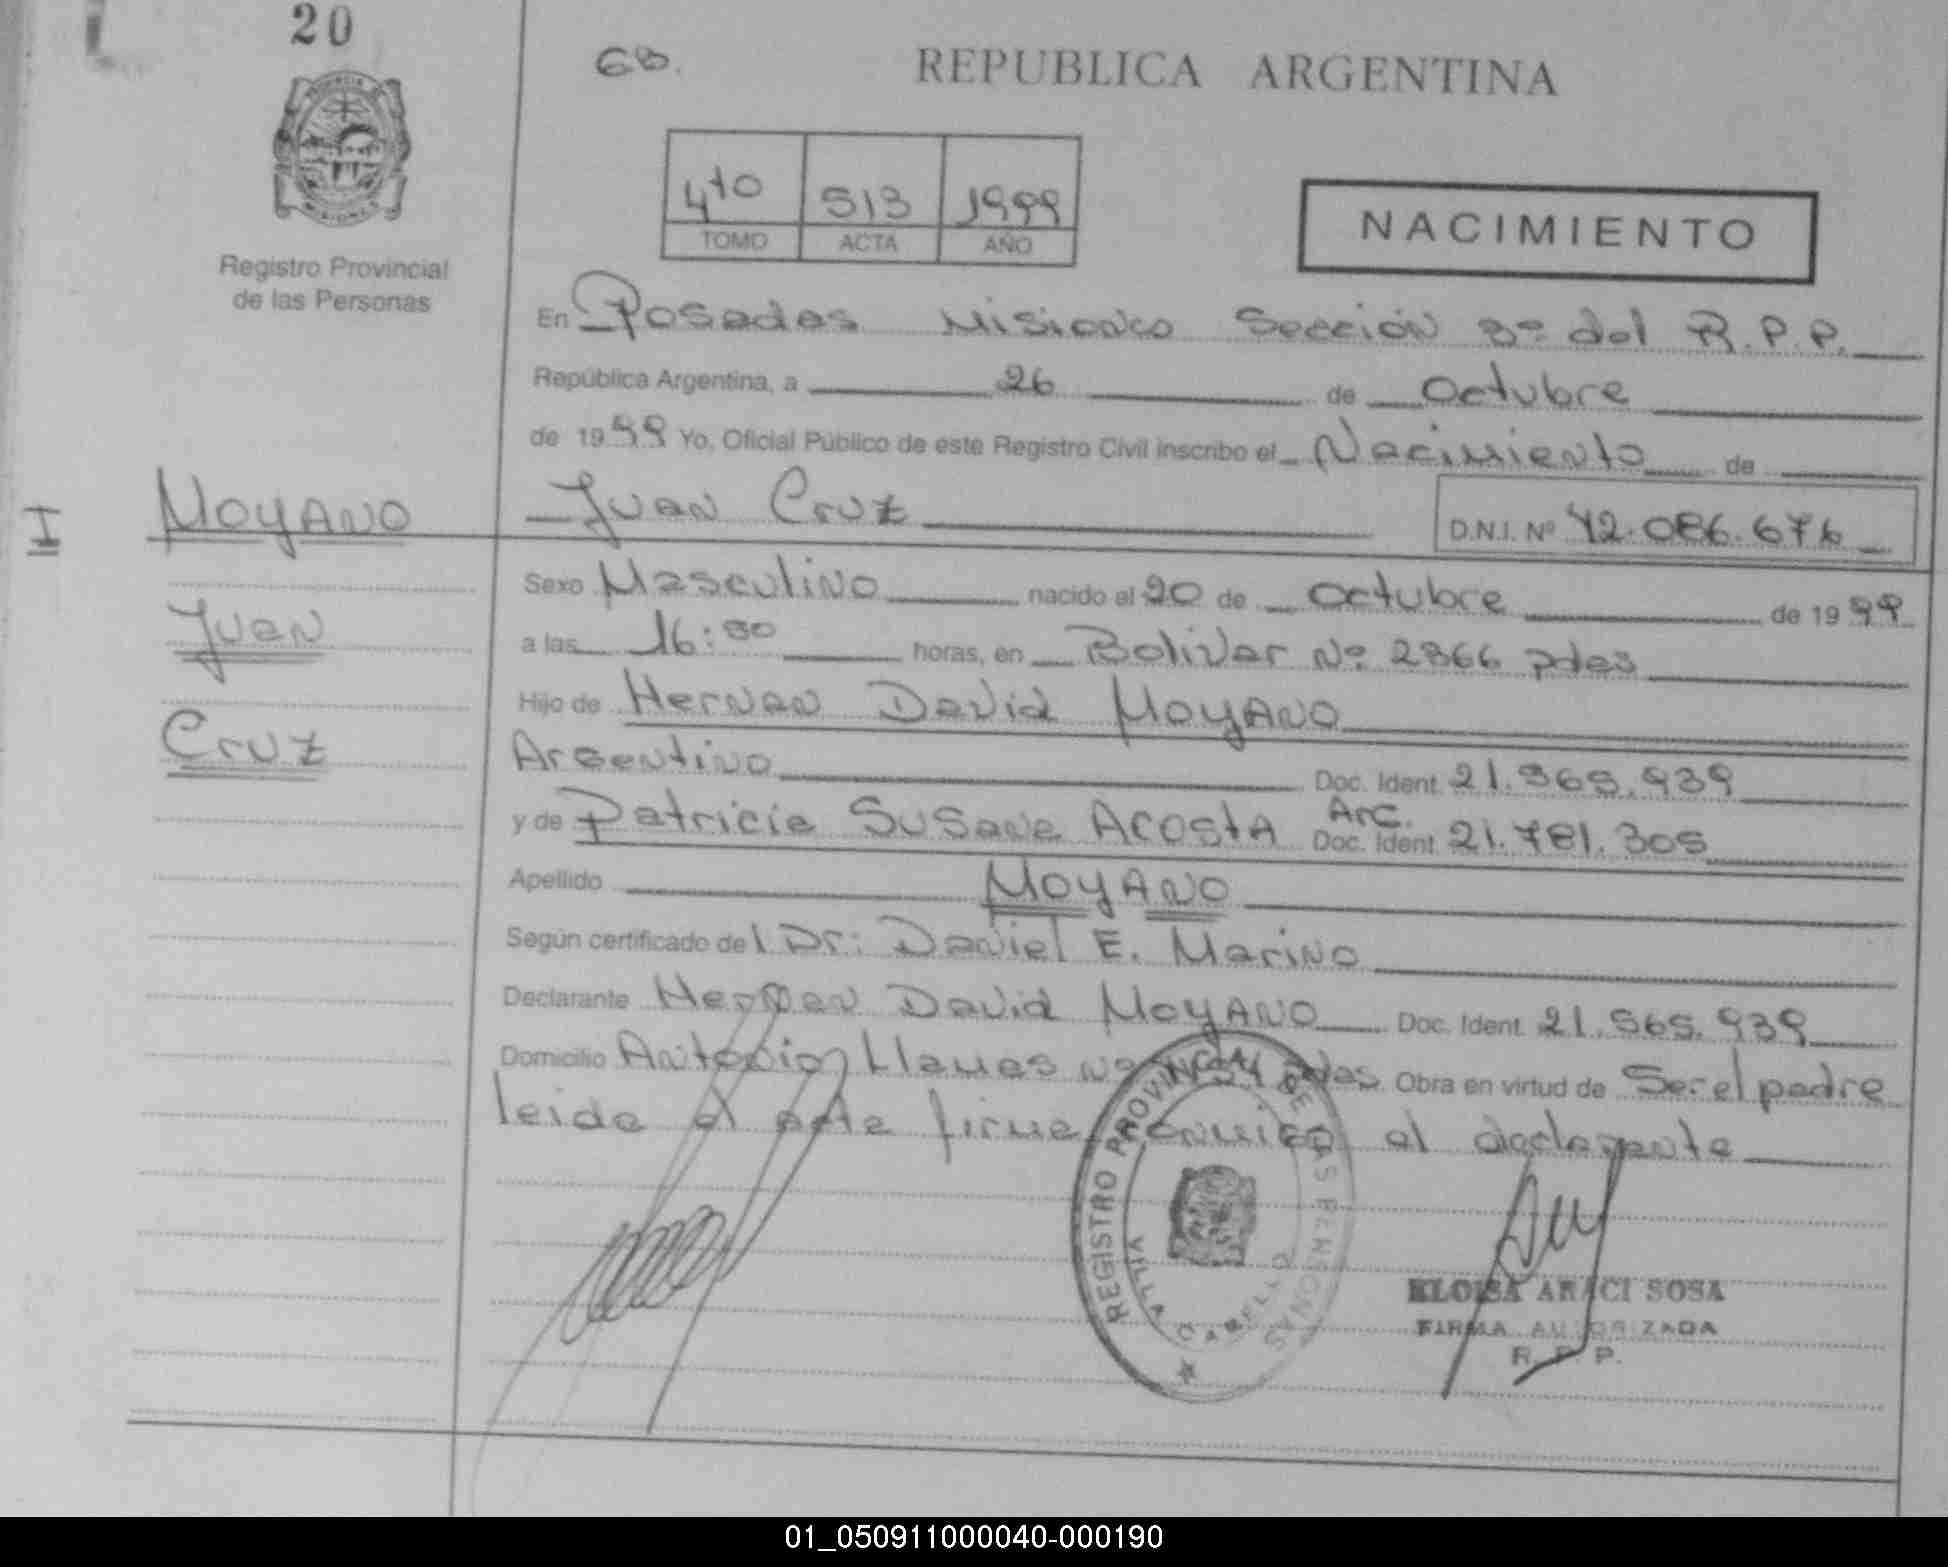 20
REPUBLICA ARGENTINA
4to 513 1999
TOMO ACTA AÑO
NACIMIENTO
PROVINCIA
MISIONES
Registro Provincial
de las Personas
En Posadas Misiones Sección 3º del R.P.P.
República Argentina, a 26 de Octubre
de 1999 Yo, Oficial Público de este Registro Civil inscribo el Nacimiento de
I MOYANO Juan Cruz D.N.I. Nº 42.086.676
Sexo Masculino nacido el 20 de Octubre de 1999
Juan
a las 16: horas, en Bolivar Nº 2366 pdas
Hijo de Hernan David MOYANO
Cruz
Argentino Doc. Ident. 21.565.939
y de Patricia Susana ACOSTA Arg. Doc. Ident. 21.781.305
Apellido MOYANO
Según certificado del Dr: Daniel E. Marino
Declarante Hernan David MOYANO Doc. Ident. 21.565.939
Domicilio Antonio Llamas Nº pdas Obra en virtud de Ser el padre
leida el acta firma conmigo el declarante
REGISTRO PROVINCIAL DE LAS PERSONAS
VILLA CABELLO
ELOISA ARACI SOSA
FIRMA AUTORIZADA
R. P. P.
01_050911000040-000190